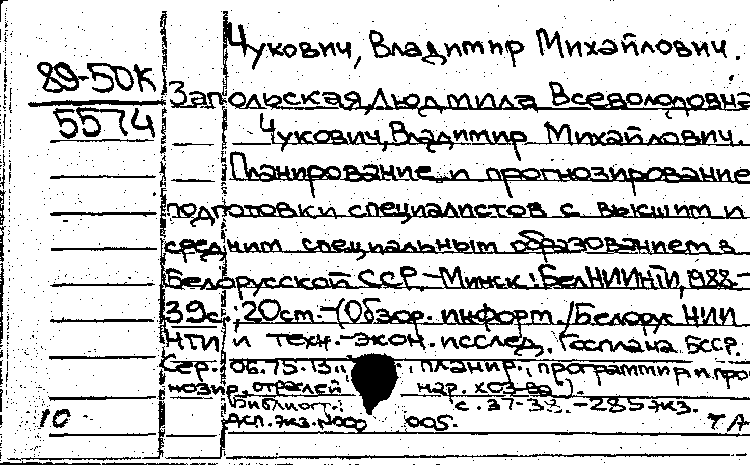 Чукович, Владимир Михайлович.
89-50К
5574
Запольская, Людмила Всеволодовна
Чукович, Владимир Михайлович.
Планирование и прогнозирование
подготовки специалистов с высшим и
средним специальным образованием в
Белорусской ССР.-Минск:БелНИИНТИ,1988.-
39с.,20см.-(Обзор. информ./Белорус НИИ
НТИ и техн.-экон. исслед. Госплана БССР.
Сер.: 06.75.13 планир., программир и про
нозир. отраслей нар. хоз-ва).
Библиогр.: с.37-38.-285экз.
005.
10